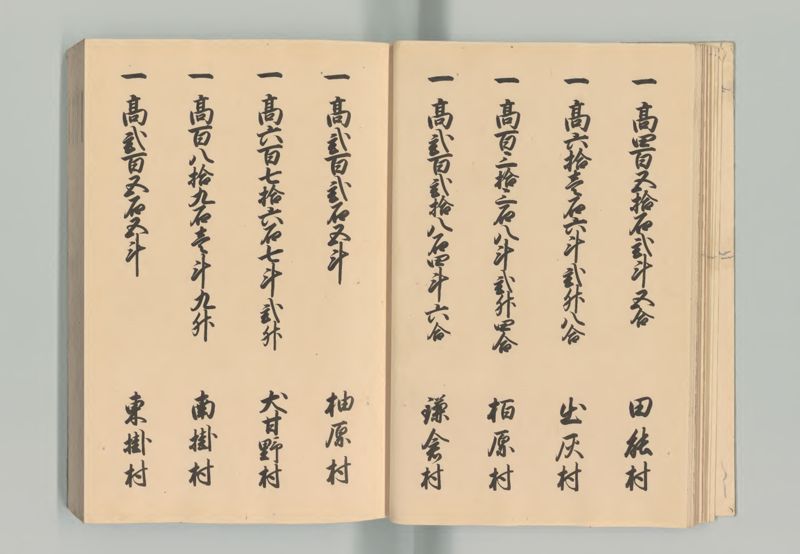 一 高四百五拾石弐斗五合 田能村
一 高六拾壱石六斗弐升八合 出灰村
一 高百三拾三石八斗弐升四合 栢原村
一 高弐百弐拾八石四斗六合 鎌倉村
一 高弐百弐石五斗 柚原村
一 高六百七拾六石七斗弐升 犬甘野村
一 高百八拾九石壱斗九升 南掛村
一 高弐百五石五斗 東掛村